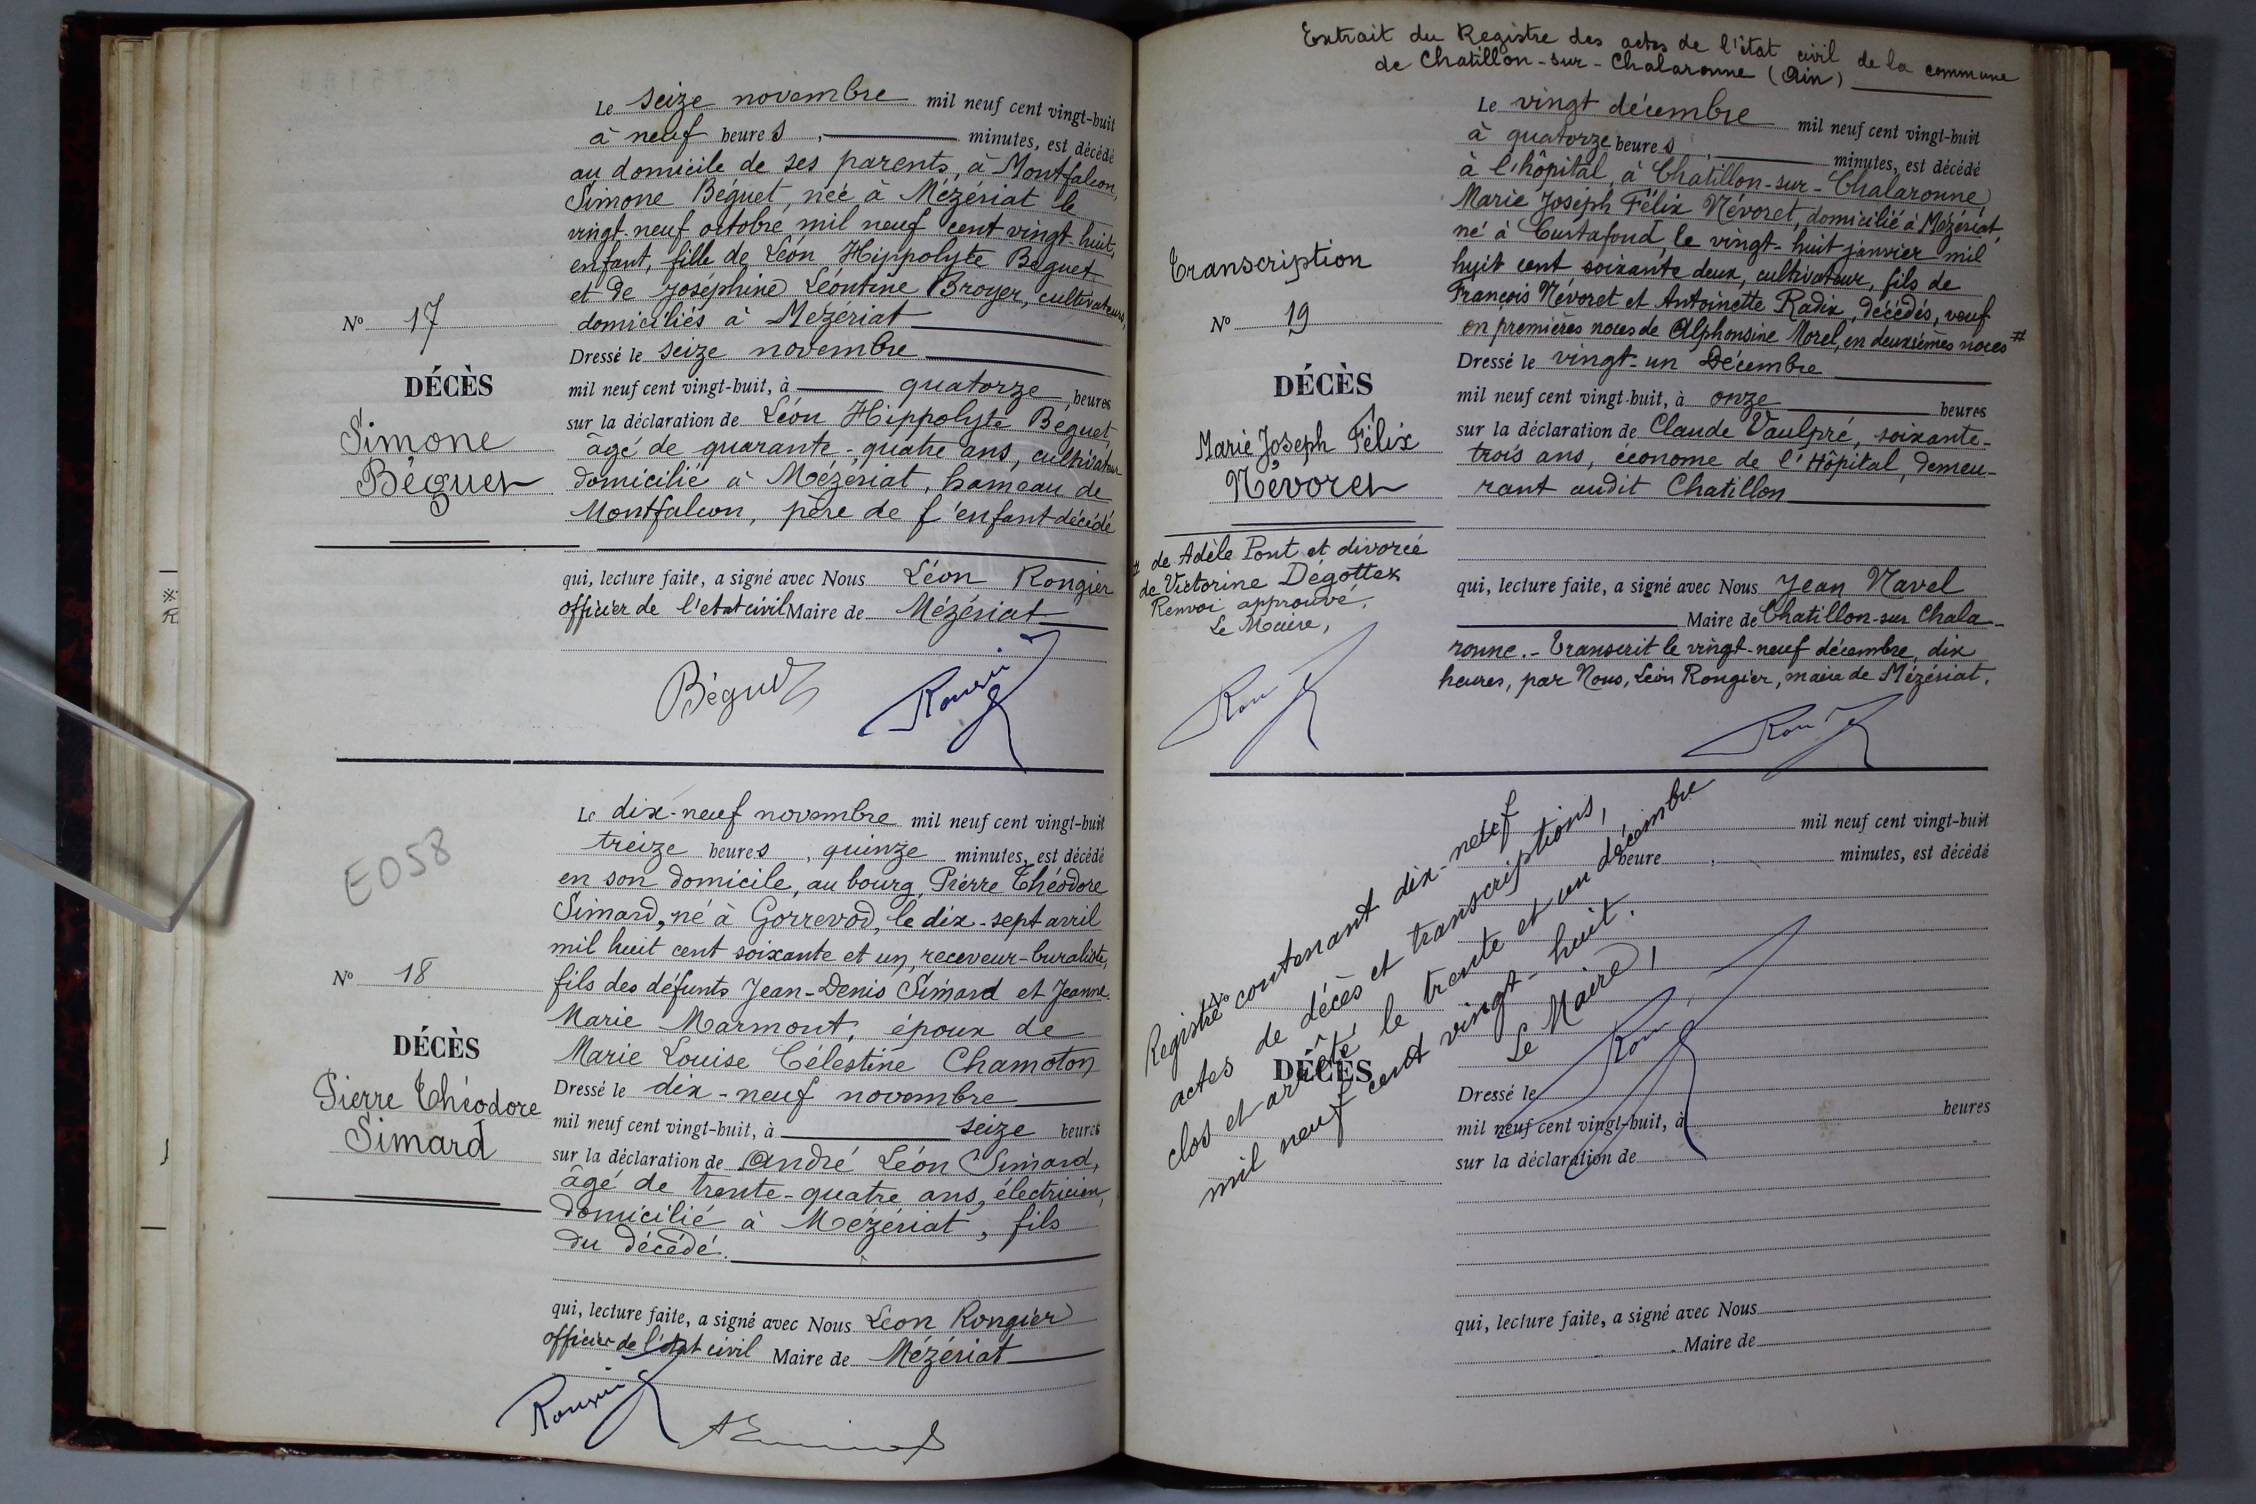 Le seize novembre mil neuf cent vingt-huit
à neuf heures, minutes, est décédé
au domicile de ses parents, à Montfalcon,
Simone Béguet, née à Mézériat le
vingt-neuf octobre mil neuf cent vingt-huit,
enfant, fille de Léon Hippolyte Béguet
et de Joséphine Léontine Broyer, cultivateurs,
domiciliés à Mézériat
N° 17
Dressé le seize novembre
DÉCÈS
mil neuf cent vingt-huit, à quatorze heures
Simone
Béguet
sur la déclaration de Léon Hippolyte Béguet
âgé de quarante-quatre ans, cultivateur
domicilié à Mézériat, hameau de
Montfalcon, père de l'enfant décédé
qui, lecture faite, a signé avec Nous Léon Rongier
officier de l'état civil Maire de Mézériat
Béguet
Rongier
E058
Le dix-neuf novembre mil neuf cent vingt-huit
treize heures, quinze minutes, est décédé
en son domicile, au bourg, Pierre Théodore
Simard, né à Gorrevod, le dix-sept avril
mil huit cent soixante et un, receveur-buraliste,
fils des défunts Jean-Denis Simard et Jeanne
Marie Marmont, époux de
Marie Louise Célestine Chamoton
N° 18
DÉCÈS
Pierre Théodore
Simard
Dressé le dix-neuf novembre
mil neuf cent vingt-huit, à seize heures
sur la déclaration de André Léon Simard,
âgé de trente-quatre ans, électricien,
domicilié à Mézériat, fils
du décédé.
qui, lecture faite, a signé avec Nous Léon Rongier
officier de l'état civil Maire de Mézériat
Rongier
Extrait du Registre des actes de l'état civil de la commune
de Chatillon-sur-Chalaronne (Ain)
Le vingt décembre mil neuf cent vingt-huit
à quatorze heures, minutes, est décédé
à l'hôpital, à Chatillon-sur-Chalaronne,
Marie Joseph Félix Névoret, domicilié à Mézériat,
né à Curtafond, le vingt-huit janvier mil
huit cent soixante deux, cultivateur, fils de
François Névoret et Antoinette Radix, décédés, veuf
en premières noces de Alphonsine Morel, en deuxièmes noces #
Transcription
N° 19
DÉCÈS
Marie Joseph Félix
Névoret
# de Adèle Pont et divorcé
de Victorine Dégottex
Renvoi approuvé.
Le Maire,
Dressé le vingt-un Décembre
mil neuf cent vingt-huit, à onze heures
sur la déclaration de Claude Vaulpré, soixante-
trois ans, économe de l'Hôpital, demeu-
rant audit Chatillon
qui, lecture faite, a signé avec Nous Jean Navel
Maire de Chatillon-sur Chala-
ronne. - Transcrit le vingt-neuf décembre, dix
heures, par Nous, Léon Rongier, maire de Mézériat.
Registre contenant dix-neuf
actes de décès et transcriptions,
clos et arrêté, le trente et un décembre
mil neuf cent vingt-huit.
Le Maire,
mil neuf cent vingt-huit
heure, minutes, est décédé
N°
DÉCÈS
Dressé le
mil neuf cent vingt-huit, à heures
sur la déclaration de
qui, lecture faite, a signé avec Nous
Maire de